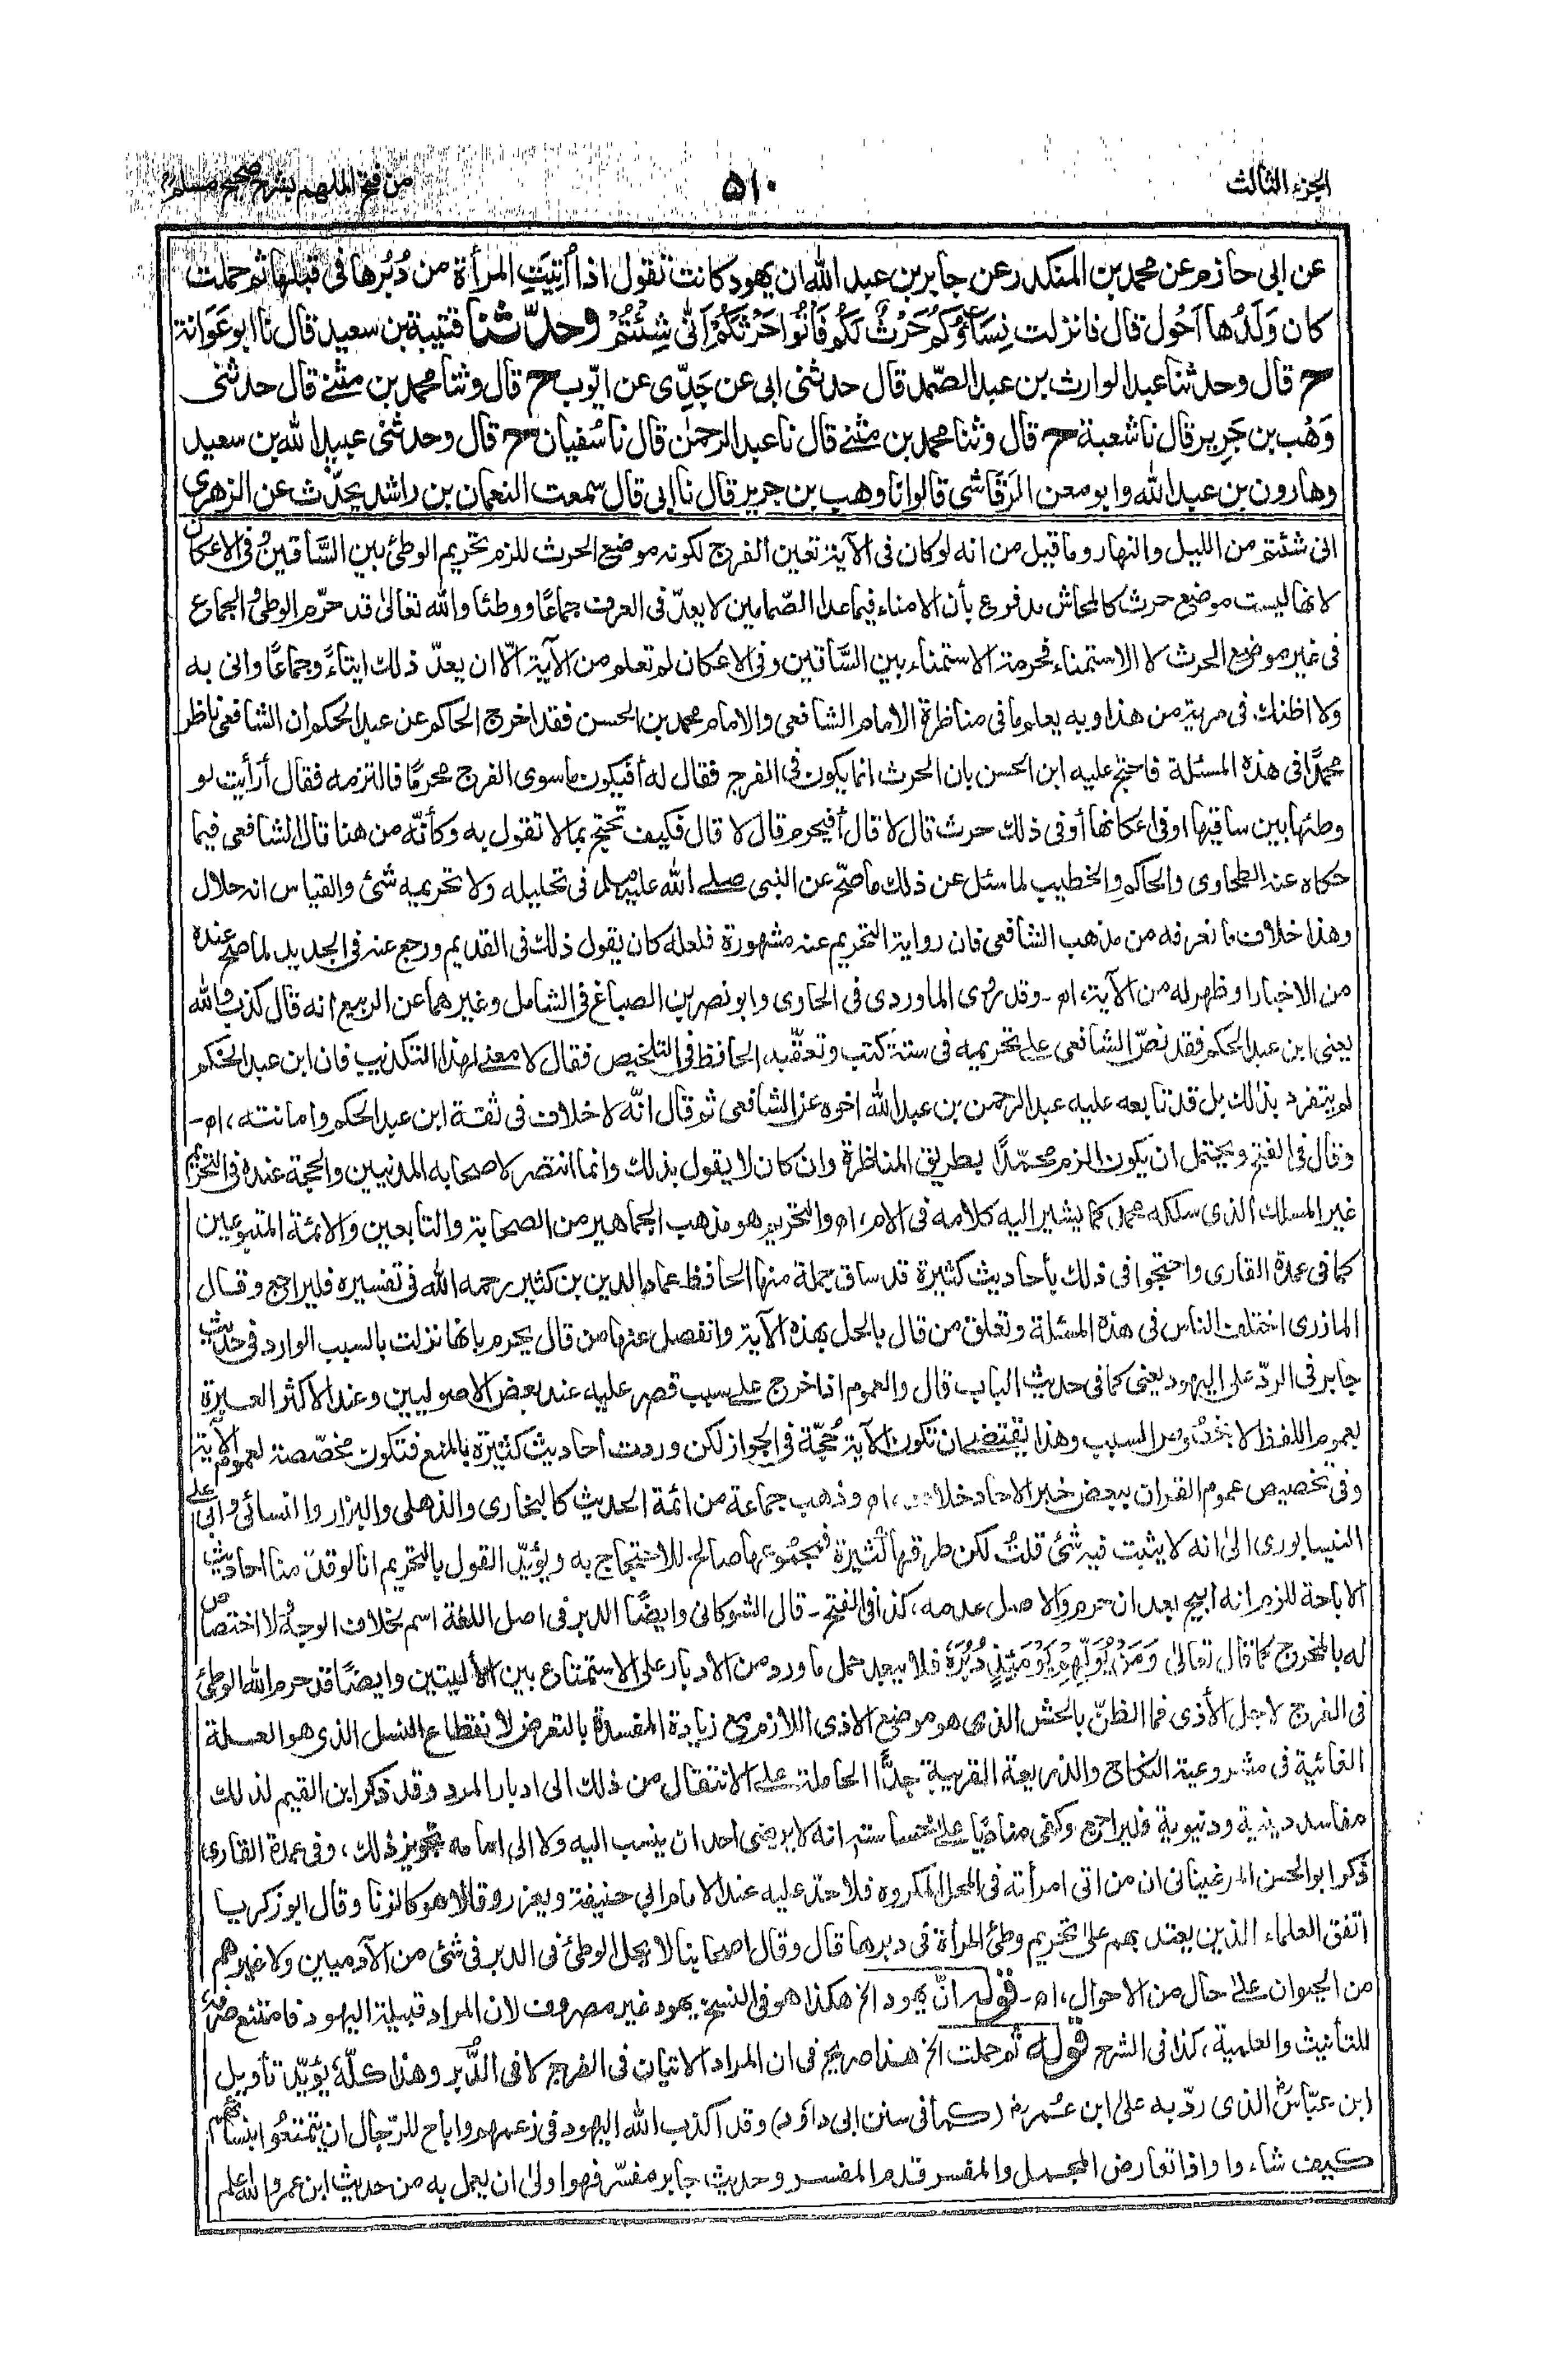 الجزء الثالث
۵۱۰
من فتح الملهم بشرح صحيح مسلم
عن ابى حازم عن محمد بن المنكدر عن جابر بن عبد الله ان يهود كانت تقول اذا أُتِيَتِ المرأة من دُبُرها فى قبلها ثم حملت
كان وَلَدُها اَحْول قال فانزلت نِسَآؤُكُمْ حَرْثٌ لَّكُمْ فَأْتُوا حَرْثَكُمْ اَنّٰى شِئْتُمْ وحدّثنا قتيبة بن سعيد قال نا ابو عَوَانة
ح قال وحدثنا عبد الوارث بن عبد الصّمد قال حدثنى ابى عن جَدِّى عن ايّوب ح قال وثنا محمد بن مثنے قال حدثنى
وَهْب بن جَرِير قال نا شعبة ح قال وثنا محمد بن مثنے قال نا عبد الرحمٰن قال نا سُفيان ح قال وحدثنى عبيد الله بن سعيد
وهارون بن عبد الله وابو معن الرَّقاشى قالوا نا وهب بن جرير قال نا ابى قال سمعت النعمان بن راشد يحدّث عن الزهرى
انى شئتم من الليل والنهار وما قيل من انه لو كان فى الآية تعين الفرج لكونه موضع الحرث للزم تحريم الوطئ بين السَّاقين وفى الاعكان
لانها ليست موضع حرث كالمحاش مدفوع بأن الامناء فيما عدا الصّمامين لا يعدّ فى العرف جماعًا ووطئا والله تعالىٰ قد حرّم الوطئ والجماع
فى غير موضع الحرث لا الاستمناء فحرمة الاستمناء بين السَّاقين وفى الاعكان لم تعلم من الآية الّا ان يعدّ ذلك ايتاءً وجماعًا وانى به
ولا اظنك فى مرية من هذا وبه يعلم ما فى مناظرة الامام الشافعى والامام محمد بن الحسن فقد اخرج الحاكم عن عبد الحكم ان الشافعى ناظر
محمدًا فى هذه المسئلة فاحتج عليه ابن الحسن بان الحرث انما يكون فى الفرج فقال له أفيكون ما سوى الفرج محرمًا فالتزمه فقال أرأيت لو
وطئها بين ساقيها او فى اعكانها أو فى ذلك حرث قال لا قال أفيحرم قال لا قال فكيف تحتج بما لا تقول به وكأنّه من هنا قال الشافعى فيما
حكاه عنه الطحاوى والحاكم والخطيب لما سئل عن ذلك ما صحّ عن النبى صلے الله عليه وسلم فى تحليله ولا تحريمه شئ والقياس انه حلال
وهذا خلاف ما نعرفه من مذهب الشافعى فان رواية التحريم عنه مشهورة فلعله كان يقول ذلك فى القديم ورجع عنه فى الجديد لما صح عنده
من الاخبار او ظهر له من الآية، اه ـ وقد روى الماوردى فى الحاوى وابو نصر بن الصباغ فى الشامل وغيرهما عن الربيع انه قال كذب والله
يعنى ابن عبد الحكم فقد نصّ الشافعى علے تحريمه فى ستة كتب وتعقّبه الحافظ فى التلخيص فقال لا معنے لهذا التكذيب فان ابن عبد الحكم
لم يتفرد بذٰلك بل قد تابعه عليه عبد الرحمن بن عبد الله اخوه عن الشافعى ثم قال انّه لا خلاف فى ثقة ابن عبد الحكم وامانته، اه ـ
وقال فى الفتح ويحتمل ان يكون الزم محمّدًا بطريق المناظرة وان كان لا يقول بذلك وانما انتصر لاصحابه المدنيين والحجة عنده فى التحريم
غير المسلك الذى سلكه محمد كما يشير اليه كلامه فى الام، اه والتحريم هو مذهب الجماهير من الصحابة والتابعين والائمة المتبوعين
كما فى عمدة القارى واحتجوا فى ذلك بأحاديث كثيرة قد ساق جملة منها الحافظ عماد الدين بن كثير رحمه الله فى تفسيره فليراجع وقال
المازرى اختلف الناس فى هذه المسئلة وتعلق من قال بالحل بهذه الآية وانفصل عنها من قال يحرم بانها نزلت بالسبب الوارد فى حديث
جابر فى الردّ على اليهود يعنى كما فى حديث الباب قال والعموم اذا خرج علے سبب قصر عليه عند بعض الاصوليين وعند الاكثر العبرة
بعموم اللفظ لا بخصوص السبب وهذا يقتضے ان تكون الآية حُجّة فى الجواز لكن وردت أحاديث كثيرة بالمنع فتكون مخصّصة لعموم الآية
وفى تخصيص عموم القران ببعض خبر الاحاد خلاف، اه وذهب جماعة من ائمة الحديث كالبخارى والذهلى والبزار والنسائى وابى على
النيسابورى الىٰ انه لا يثبت فيه شئ قلتُ لكن طرقها كثيرة فمجموعها صالح للاحتجاج به ويؤيّد القول بالتحريم انا لو قدّمنا احاديث
الاباحة للزم انه ابيح بعد ان حرم والاصل عدمه، كذا فى الفتح ـ قال الشوكانى وايضًا الدبر فى اصل اللغة اسم بخلاف الوجه ولا اختصاص
له بالمخرج كما قال تعالىٰ وَمَنْ يُّوَلِّهِمْ يَوْمَئِذٍ دُبُرَهٗ فلا يبعد حمل ما ورد من الادبار على الاستمتاع بين الأليتين وايضًا قد حرم الله الوطئ
فى الفرج لاجل الأذى فما الظنّ بالحشّ الذى هو موضع الاذى اللازم مع زيادة المفسدة بالتعرض لانقطاع النسل الذى هو العلة
الغائية فى مشروعية النكاح والذريعة القريبة جدًّا الحاملة علے الانتقال من ذلك الى ادبار المرد وقد ذكر ابن القيم لذلك
مفاسد دينية ودنيوية فليراجع وكفى مناديًا علے خساسته انه لا يرضى احد ان ينسب اليه ولا الى امامه تجويز ذلك، وفى عمدة القارى
ذكر ابو الحسن المرغينانى ان من اتى امرأته فى المحل المكروه فلا حدّ عليه عند الامام ابى حنيفة ويعزر وقالا هو كالزنا وقال ابو زكريا
اتفق العلماء الذين يعتد بهم على تحريم وطئ المرأة فى دبرها قال وقال اصحابنا لا يحل الوطئ فى الدبر فى شئ من الآدميين ولا غيرهم
من الحيوان علے حال من الاحوال، اه ـ قوله انّ يهود الخ هكذا هو فى النسخ يهود غير مصروف لان المراد قبيلة اليهود فامتنع صرفه
للتأنيث والعلمية، كذا فى الشرح قوله ثم حملت الخ هذا صريح فى ان المراد الاتيان فى الفرج لا فى الدُّبر وهذا كلّهٗ يؤيّد تأويل
ابن عبّاسؓ الذى ردّ به علىٰ ابن عمرؓ (كما فى سنن ابى داؤد) وقد اكذب الله اليهود فى زعمهم واباح للرّجال ان يتمتعُوا بنسائهم
كيف شاءوا واذا تعارض المجمل والمفسر قدم المفسر وحديث جابر مفسّر فهو اولىٰ ان يعمل به من حديث ابن عمر والله اعلم